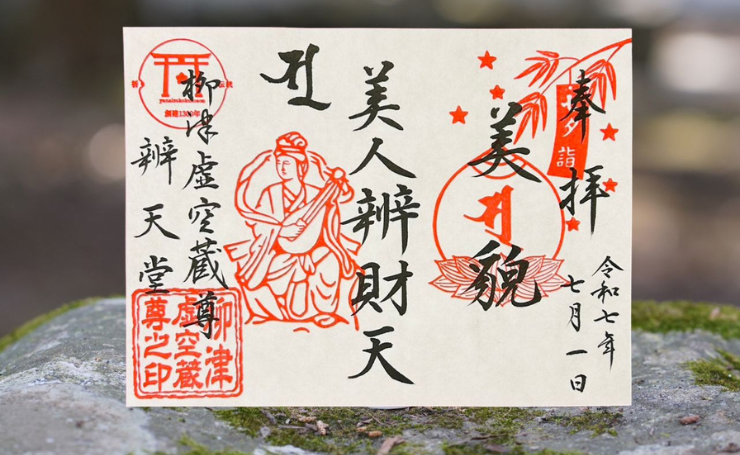 奉拝
令和七年
七月一日
七夕詣
美貌
美人辨財天
柳津虚空蔵尊
辨天堂
創建1300年
柳津
虚空蔵
尊之印